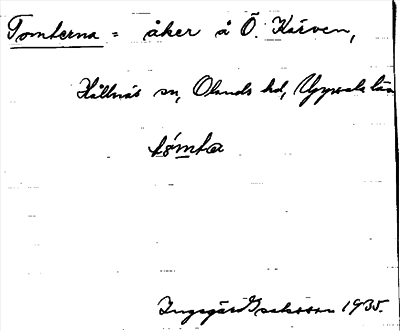 Tomterna = åker å Ö. Kärven,
Hållnäs sn, Olands hd, Uppsala län
tómta
Ingegärd Isaksson 1935.